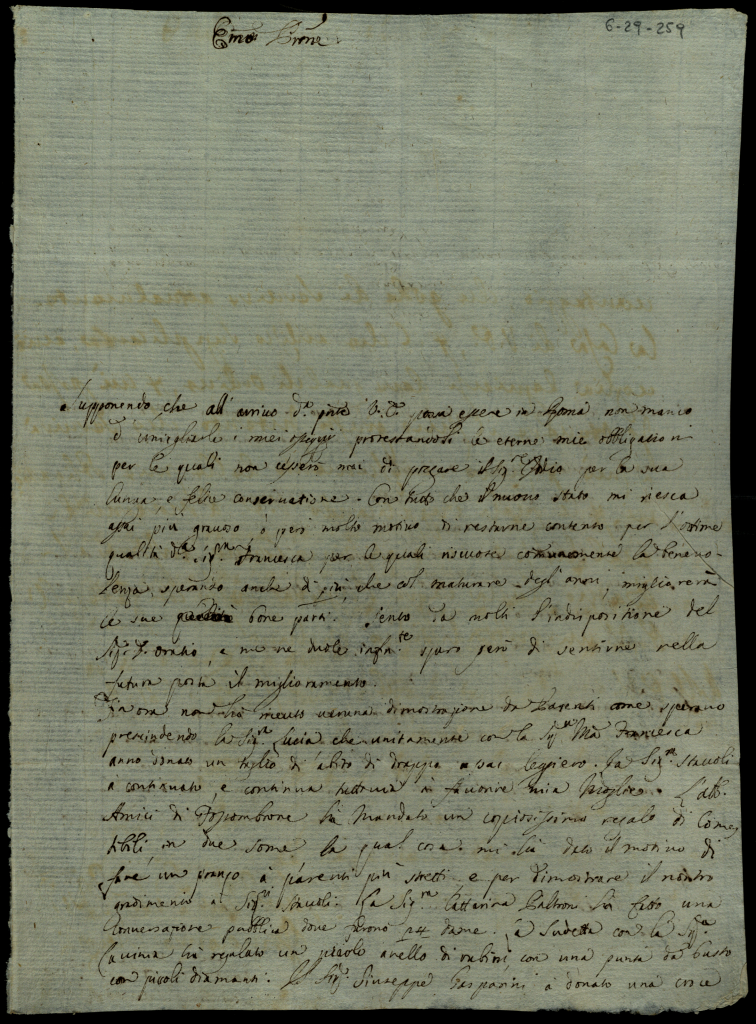 6-29-259
Emo Prone
Supponendo che all' arrivo d.ª pnte V. E. possa essere in Roma non manco
d' umigliarle i miei ossequi protestandoli le eterne mie obbligationi
per le quali non cesserò mai di pregare il Sig.re Iddio per la sua
lunga, e felice conservatione. Con tutto che il nuovo stato mi riesca
assai più gravoso ò però molto motivo di restarne contento per l'ottime
qualità d.ª Sig.ra Francesca per le quali riscuote comunemente la benevo-
lenza, sperando anche di più, che col maturare degl' anni, migliorerà
le sue bone parti. Sento da molti l'indisposizione del
Sig.r D. Oratio, e me ne duole infin.te spero però di sentirne nella
futura posta il miglioramento.
In ora non hò riceuto veruna dimostrazione da Parenti come speravo
prescindendo la Sig.ra Lucia che unitamente con la Sig.ra Ma Francesca
anno donato un taglio di abito di drappo assai leggiero. La Sig.ra Stavoli
à continuato, e continua tuttavia in favorire mia Moglie. L'ab.
Amici di Fossombrone hà mandato un copiosissimo regalo di Comes
tibili, in due some la qual cosa mi hà dato il motivo di
fare un pranzo à parenti più stretti e per dimostrare il nostro
gradimento ai Sig.ri Stavoli. La Sig.ra Cattarina Baltroni hà fatto una
Conversazione pubblica dove furono 24 dame. la Sudetta con la Sig.ra
Lavinia hà regalato un picolo anello di rubini con una punta da busto
con picoli diamanti. Il Sig.r Giuseppe Gasparini a donato una croce